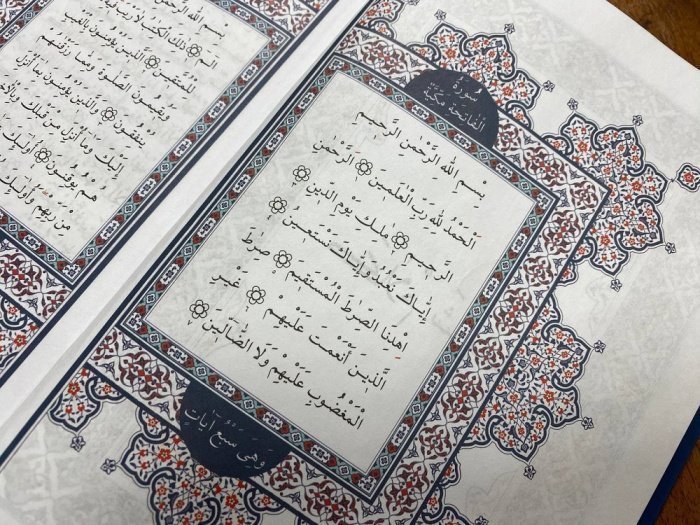 سُورَةُ
الْفَاتِحَةِ مَكِّيَّةٌ
بِسْمِ اللّٰهِ الرَّحْمٰنِ الرَّحِيمِ
اَلْحَمْدُ لِلّٰهِ رَبِّ الْعٰلَمِينَ الرَّحْمٰنِ
الرَّحِيمِ مٰلِكِ يَوْمِ الدِّينِ
اِيَّاكَ نَعْبُدُ وَاِيَّاكَ نَسْتَعِينُ
اِهْدِنَا الصِّرَاطَ الْمُسْتَقِيمَ صِرَاطَ
الَّذِينَ اَنْعَمْتَ عَلَيْهِمْ غَيْرِ
الْمَغْضُوبِ عَلَيْهِمْ وَلَا الضَّالِّينَ
وَهِيَ سَبْعُ اٰيَاتٍ
بِسْمِ اللّٰهِ الرَّحْمٰنِ
الٓمٓ ذٰلِكَ الْكِتٰبُ لَا رَيْبَ
لِلْمُتَّقِينَ الَّذِينَ يُؤْمِنُونَ بِالْغَيْبِ
وَيُقِيمُونَ الصَّلٰوةَ وَمِمَّا رَزَقْنٰهُمْ
يُنْفِقُونَ وَالَّذِينَ يُؤْمِنُونَ بِمَا اُنْزِلَ
اِلَيْكَ وَمَا اُنْزِلَ مِنْ قَبْلِكَ
هُمْ يُوقِنُونَ اُولٰٓئِكَ
مِنْ رَبِّهِمْ وَاُولٰٓئِكَ